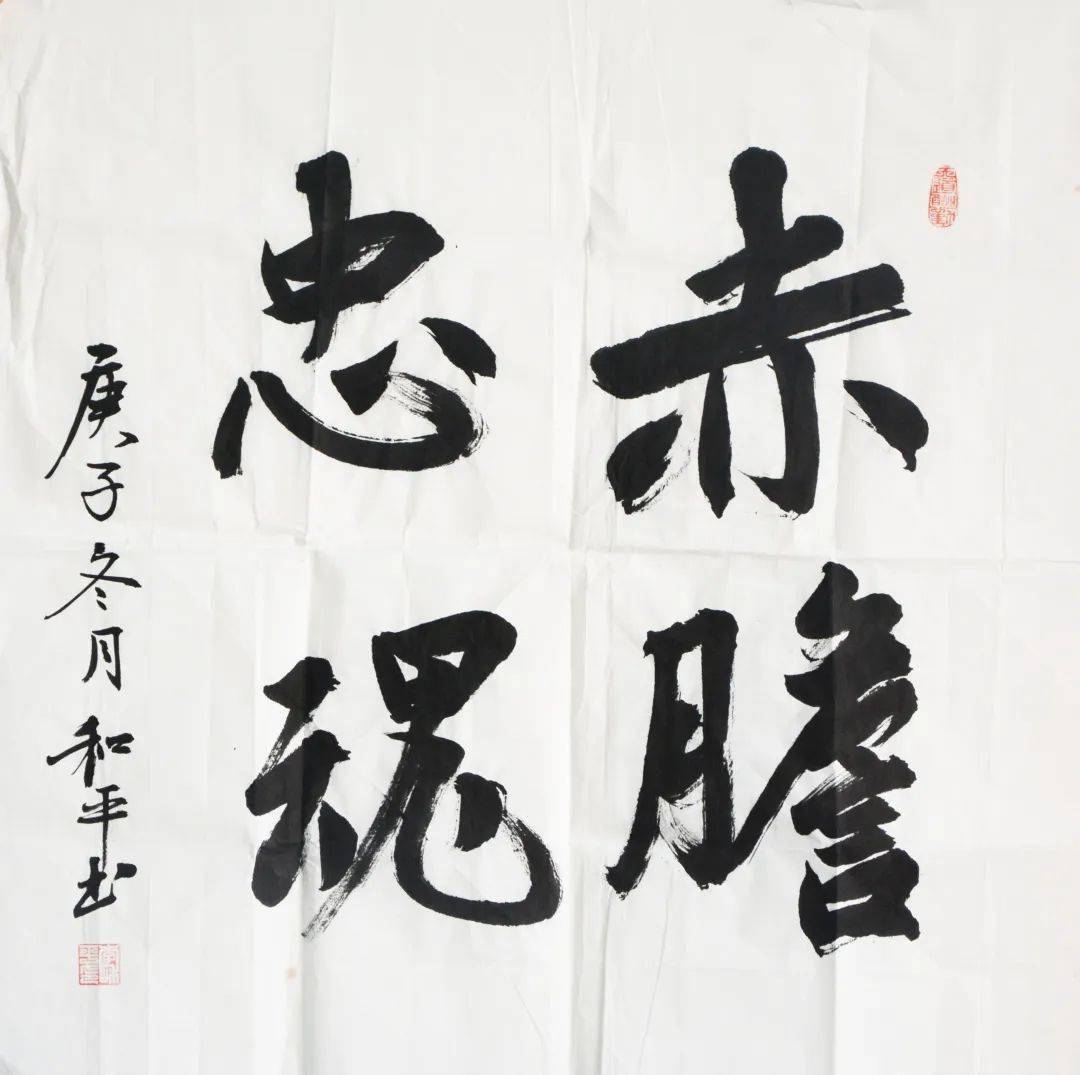 赤膽
忠魂
庚子冬月和平书